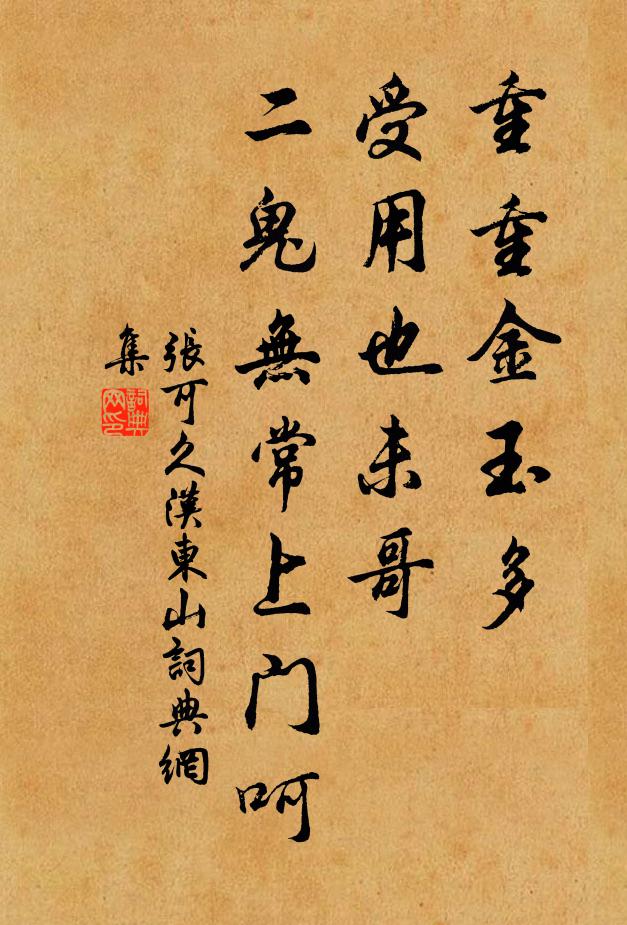 重重金玉多
受用也未哥
二鬼無常上门呵
張可久漢東山詞典網
集
詞典
网印